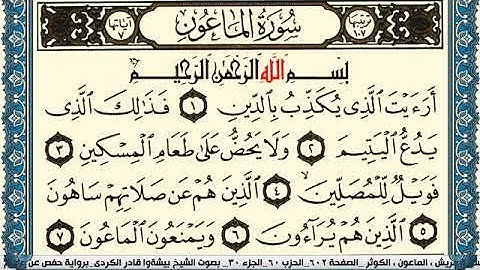 ترتيبها ١٠٧ سُورَةُ المَاعُونِ آياتها ٧
بِسْمِ ٱللَّهِ ٱلرَّحْمَٰنِ ٱلرَّحِيمِ
أَرَءَيْتَ ٱلَّذِى يُكَذِّبُ بِٱلدِّينِ ١ فَذَٰلِكَ ٱلَّذِى
يَدُعُّ ٱلْيَتِيمَ ٢ وَلَا يَحُضُّ عَلَىٰ طَعَامِ ٱلْمِسْكِينِ ٣
فَوَيْلٌ لِّلْمُصَلِّينَ ٤ ٱلَّذِينَ هُمْ عَن صَلَاتِهِمْ سَاهُونَ
٥ ٱلَّذِينَ هُمْ يُرَآءُونَ ٦ وَيَمْنَعُونَ ٱلْمَاعُونَ ٧
ريش ، الماعون ، الكوثر_ الصفحة ٦٠٢_ الحزب ٦٠_ الجزء ٣٠_ بصوت الشيخ بيشةوا قادر الكردي_ برواية حفص عن